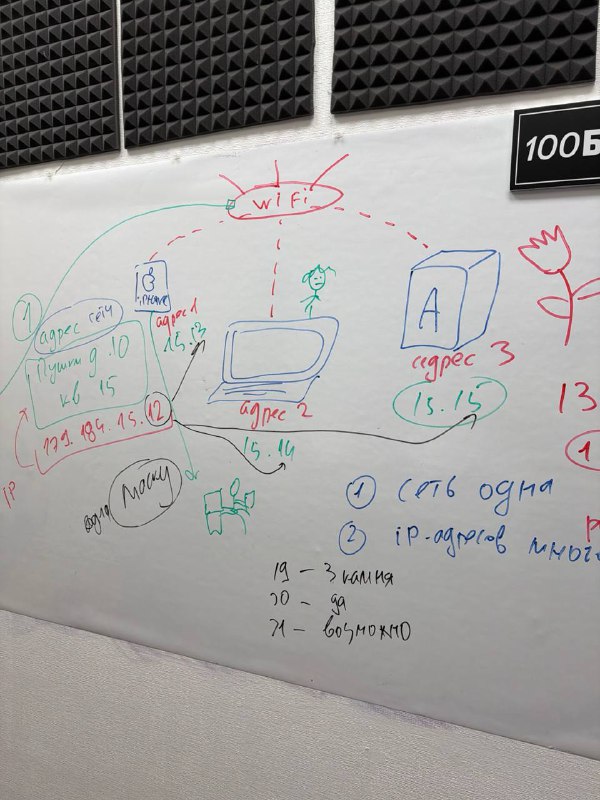 100Б
WiFi
iPhone
адрес 1
15.13
1
адрес сети
Пушки д. 10
кв 15
179.184.15.12
IP
одна маску
А
адрес 2
15.14
адрес 3
15.15
13
1
1 сеть одна
2 iP-адресов много
19 – 3 камня
20 – да
21 – возможно